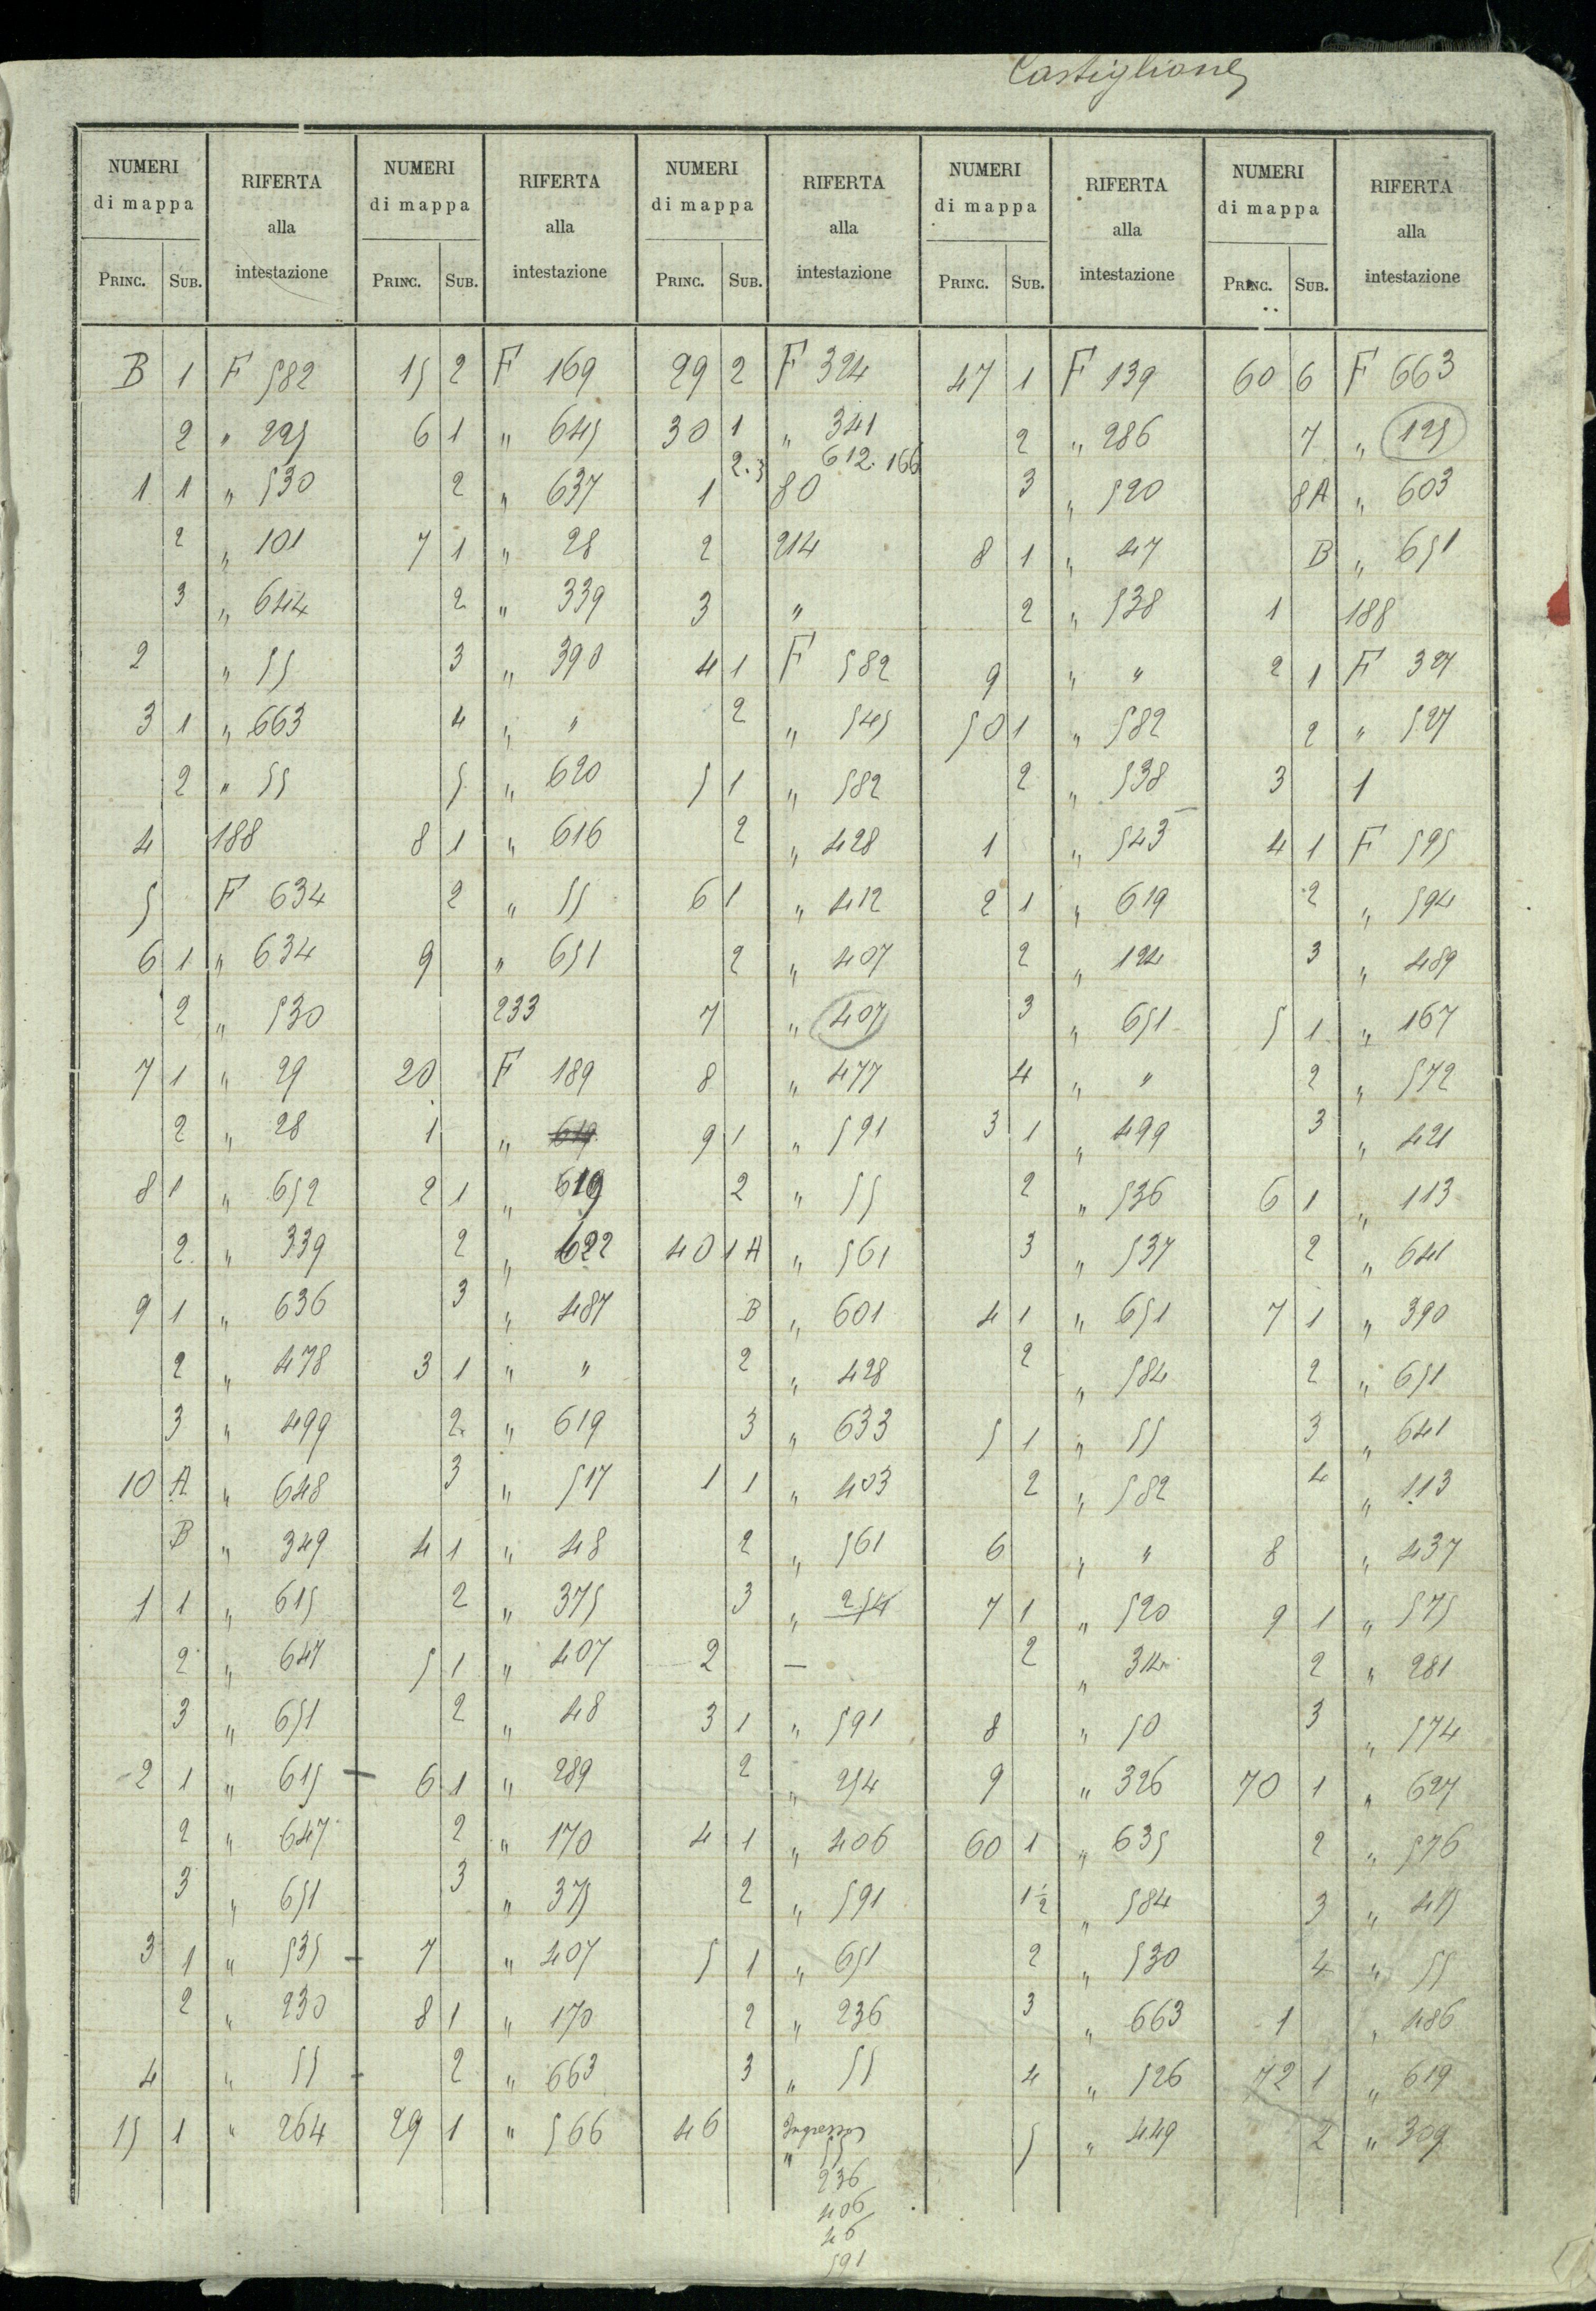 Castiglione
NUMERI di mappa RIFERTA alla intestazione NUMERI di mappa RIFERTA alla intestazione NUMERI di mappa RIFERTA alla intestazione NUMERI di mappa RIFERTA alla intestazione NUMERI di mappa RIFERTA alla intestazione
PRINC. SUB. PRINC. SUB. PRINC. SUB. PRINC. SUB. PRINC. SUB.
B 1 F 582 15 2 F 169 29 2 F 324 47 1 F 139 60 6 F 663
2 " 225 6 1 " 645 30 1 " 341 2 " 286 7 " 125
2.3 612. 166
1 1 " 530 2 " 637 1 80 3 " 520 8A " 603
2 " 101 7 1 " 28 2 214 8 1 " 47 B " 651
3 " 644 2 " 339 3 " 2 " 538 1 188
2 " 55 3 " 390 4 1 F 582 9 " " 2 1 F 327
3 1 " 663 4 " " 2 " 545 50 1 " 582 2 " 527
2 " 55 5 " 620 5 1 " 582 2 " 538 3 1
4 188 8 1 " 616 2 " 428 1 " 543 4 1 F 595
5 F 634 2 " 55 6 1 " 412 2 1 " 619 2 " 594
6 1 " 634 9 " 651 2 " 407 2 " 124 3 " 489
2 " 530 233 7 " 407 3 " 651 5 1 " 167
7 1 " 29 20 F 189 8 " 477 4 " " 2 " 572
2 " 28 1 " 619 9 1 " 591 3 1 " 499 3 " 421
8 1 " 652 2 1 " 619 2 " 55 2 " 536 6 1 " 113
2 " 339 2 " 622 40 1A " 561 3 " 537 2 " 641
9 1 " 636 3 " 487 B " 601 4 1 " 651 7 1 " 390
2 " 478 3 1 " " 2 " 428 2 " 584 2 " 651
3 " 499 2 " 619 3 " 633 5 1 " 55 3 " 641
10 A " 648 3 " 517 1 1 " 403 2 " 582 4 " 113
B " 349 4 1 " 48 2 " 561 6 " " 8 " 437
1 1 " 615 2 " 375 3 " 254 7 1 " 520 9 1 " 575
2 " 647 5 1 " 407 2 — 2 " 314 2 " 281
3 " 651 2 " 48 3 1 " 591 8 " 50 3 " 574
2 1 " 615 — 6 1 " 289 2 " 254 9 " 326 70 1 " 627
2 " 647 2 " 170 4 1 " 406 60 1 " 635 2 " 576
3 " 651 3 " 375 2 " 591 1½ " 584 3 " 415
3 1 " 535 - 7 " 407 5 1 " 651 2 " 530 4 " 55
2 " 230 8 1 " 170 2 " 236 3 " 663 1 " 486
4 " 55 - 2 " 663 3 " 55 4 " 526 72 1 " 619
15 1 " 264 29 1 " 566 46 5 " 449 2 " 309
" 55
236
406
46
591